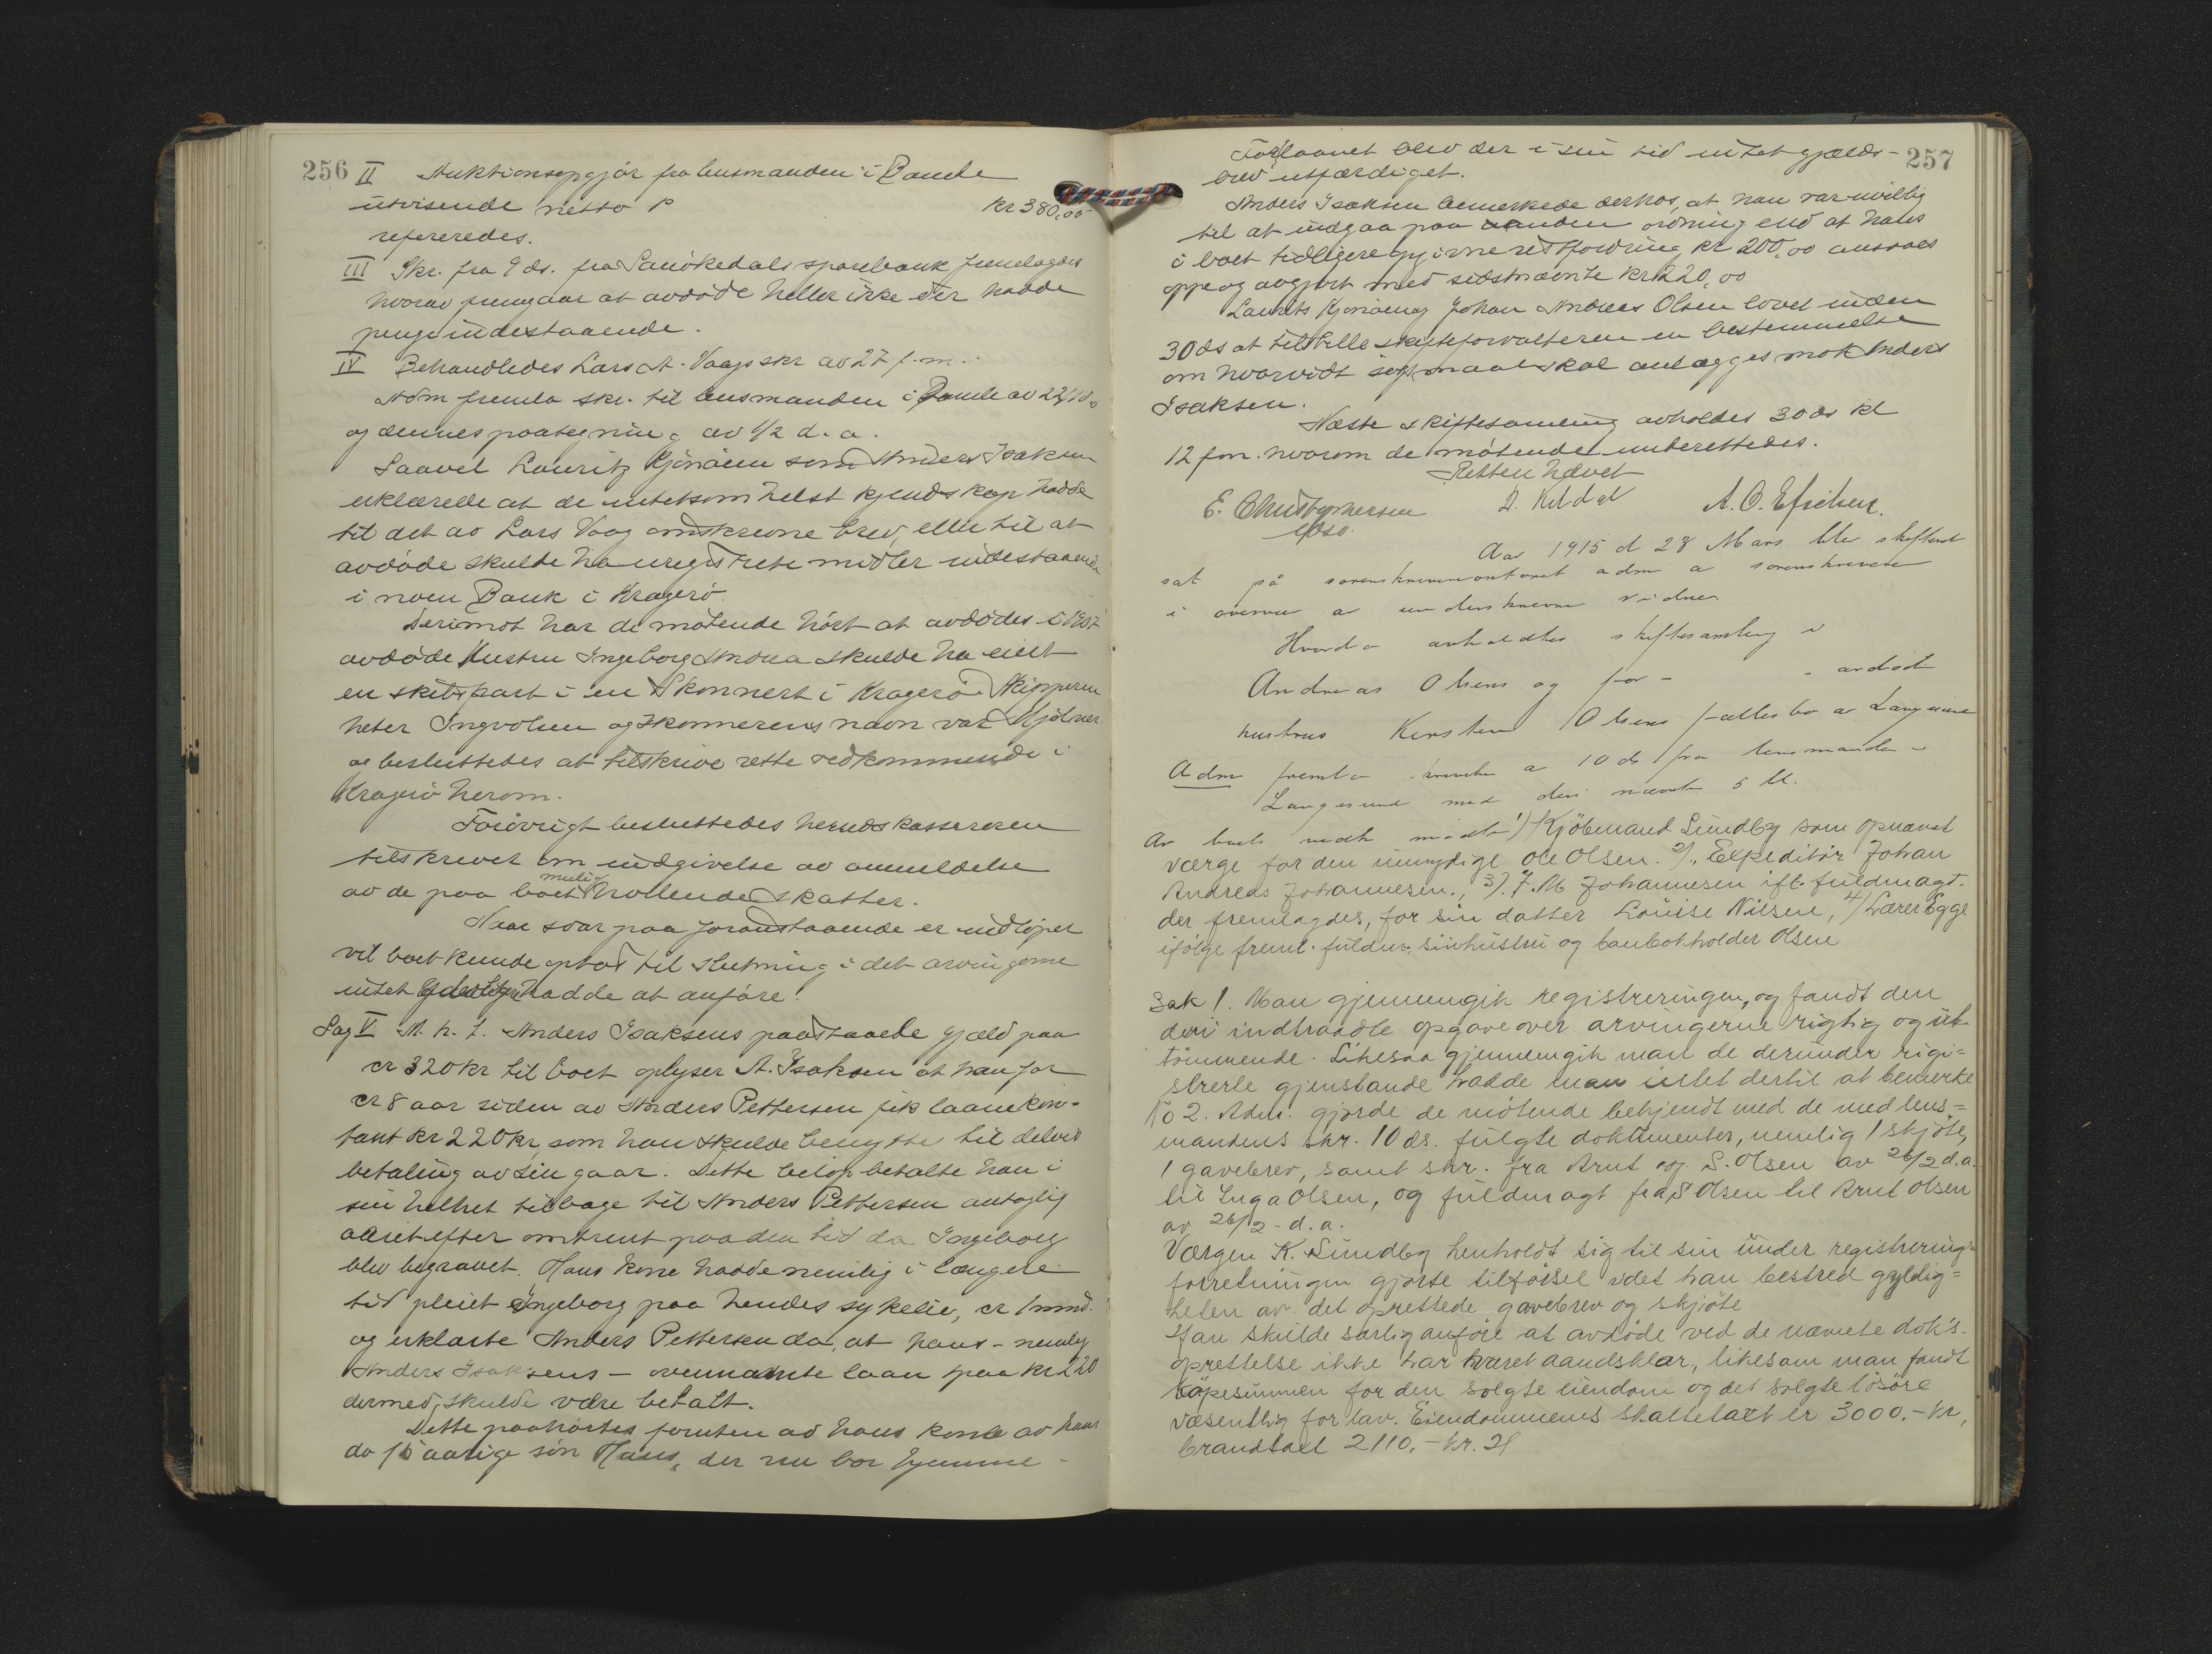 256
II Auktionsopgjør fra lensmanden i Bamle
utvisende netto p kr 380,00
refereredes.
III Skr. fra 9 ds. fra Sanökedals sparebank fremlagdes
hvorav fremgaar at avdöde heller ikke der hadde
penge indestaaende.
IV Behandledes Lars A. Vaags skr av 27 f.m.
Adm fremla skr. til lensmanden i Bamle av
og dennes paategning av 1/2 d.a.
Saavel Lauritz Kjönöen som Anders Isaksen
erklærede at de intetsomhelst kjendskap hadde
til det av Lars Vaag omskrevne brev, eller til at
avdöde skulde ha uregistrerte midler indestaaende
i noen Bank i Kragerö.
Derimot har de mötende hört at avdödes i 1907
avdöde Hustru Ingeborg Andrea skulde ha eiet
en skibspart i en Skonnert i Kragerö. Skipperen
heter Ingvolsen og skonnertens navn var Mjölner
og besluttedes at tilskrive rette vedkommende i
Kragerö herom.
Forövrigt besluttedes herredskassereren
tilskrevet om indgivelse av anmeldelse
av de paa boet mulig hvilende skatter.
Naar svar paa foranstaaende er indlöpet
vil boet kunde optas til slutning i det arvingerne
intet hadde at anföre.
Sag V M. h. t. Anders Isaksens paastaaede gjæld paa
cr 320 kr til boet oplyser A. Isaksen at han for
cr 8 aar siden av Anders Pettersen fik laane kon-
tant kr 220 kr, som han skulde benytte til delvis
betaling av sin gaar. Dette belöp betalte han i
sin helhet tilbage til Anders Pettersen antagelig
aaret efter omtrent paa den tid da Ingeborg
blev begravet. Hans kone hadde nemlig i længere
tid pleiet Ingeborg paa hendes sykelie, cr 1 mnd.
og erklærte Anders Pettersen da, at hans - nemlig
Anders Isaksens - ovennævnte laan paa kr 220
dermed skulde være betalt.
Dette paahörtes foruten av hans kone av hans
da 15 aarige sön Hans, der nu bor hjemme -
257
For laanet blev der i sin tid intet gjælds-
brev utfærdiget.
Anders Isaksen bemerkede derhos, at han var uvillig
til at indgaa paa anden ordning end at hans
i boet tidligere gjorne fordring kr 200,00 ansaaes
opp og avgjort med sidstnævnte kr 220,00
Laurits Kjönöen og Johan Andreas Olsen lovet inden
30 ds at tilstille skifteforvalteren en bestemmelse
om hvorvidt sögsmaal skal anlægges mot Anders
Isaksen.
Næste skiftesamling avholdes 30 ds kl
12 fm. hvorom de mötende underrettedes.
Retten hævet
E. Christophersen D. Kildal A. O. Efsichen.
const.
Aar 1915 d 28 Mars blev skifteret
sat på sorenskriverkontoret adm a sorenskriveren
i overvær av underskrevne vidner
Hvorda avholdtes skiftesamling i
Andreas Olsens og for - - avdöde
hustrus Kirstine Olsens fællesbo a Langesund
Adm fremla skrivelse a 10 ds fra lensmanden i
Langesund med deri nævnte 5 bl.
Av boets vedk mödte 1) Kjöbmand Lundby som opnævnt
værge for den umyndige Ole Olsen. 2)., Expeditör Johan
Andreas Johannesen., 3). J. M Johannesen ifl. fuldmagt.
der fremlagdes, for sin datter Louise Nilsen, 4) Lærer Egge
ifölge freml. fuldm. sin hustru og bankbokholder Olsen
Sak 1. Man gjennemgik registreringen, og fandt den
deri indtraadte opgave over arvingerne rigtig og ut-
tömmende. Likesaa gjennemgik man de derunder regi=
strerte gjenstande hadde man intet dertil at bemerke
No 2. Adm. gjorde de mötende bekjendt med de med lens-
mandens skr. 10 ds. fulgte dokumenter, nemlig 1 skjöte,
1 gavebrev, samt skr. fra Arnt og S. Olsen av 26/2 d.a.
til Inga Olsen, og fuldmagt fra S Olsen til Arnt Olsen
av 26/2 - d.a.
Værgen K. Lundby henholdt sig til sin under registrerings-
forretningen gjorte tilförsel idet han bestred gyldig=
heten av det oprettede gavebrev og skjöte
Han skulde særlig anföre at avdöde ved de nævnte dok's.
oprettelse ikke har været aandsklar, likesom man fandt
köpesummen for den solgte eiendom og det solgte lösöre
væsentlig for lav. Eiendommenes skattetakt er 3000.- kr,
brandtakt 2110.- kr. 2/